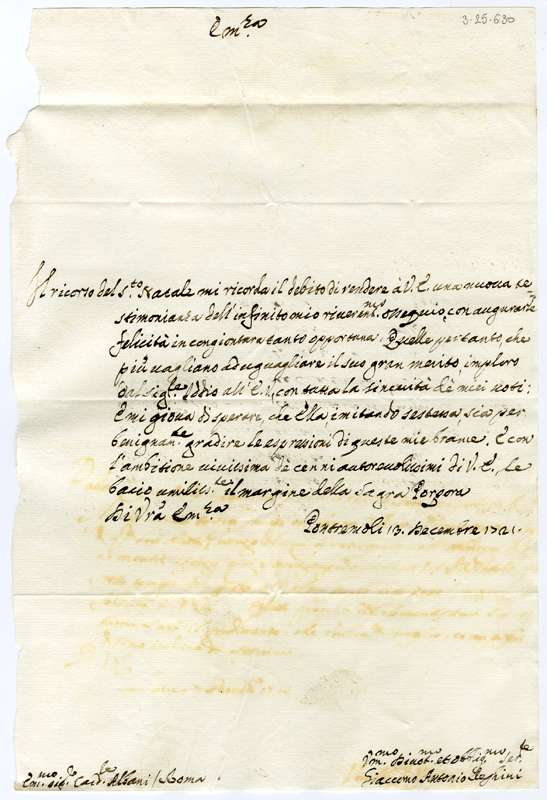 3-25-630
Em.ᶻᵃ
Il ricorso del S.ᵗᵒ Natale mi ricorda il debito di rendere à V. E. una nuova te=
stimonianza dell'infinito mio riveren.ᵐᵒ ossequio, con augurarle
felicità in congiontura tanto opportuna. Quelle pertanto, che
più vagliano ad uguagliare il suo gran merito, imploro
dal Sig.ʳᵉ Iddio all' con tutta la sincerità de miei voti;
E mi giova di sperare, che Ella, imitando se stessa, sia per
benignam.ᵗᵉ gradire le espressioni di queste mie brame. E con
l'ambitione vivissima de cenni autorevolissimi di V. E., le
bacio umilis.ᵗᵉ il margine della Sagra Porpora
Di Vrã Em.ᶻᵃ
Pontremoli 13. Decembre 1721.
Em.ᵐᵒ Sig.ʳ Card.ˡᵉ Albani / Roma
Vm.ᵐᵒ Divot.ᵐᵒ et Obblig.ᵐᵒ Ser.ʳᵉ
Giacomo Antonio Reghini